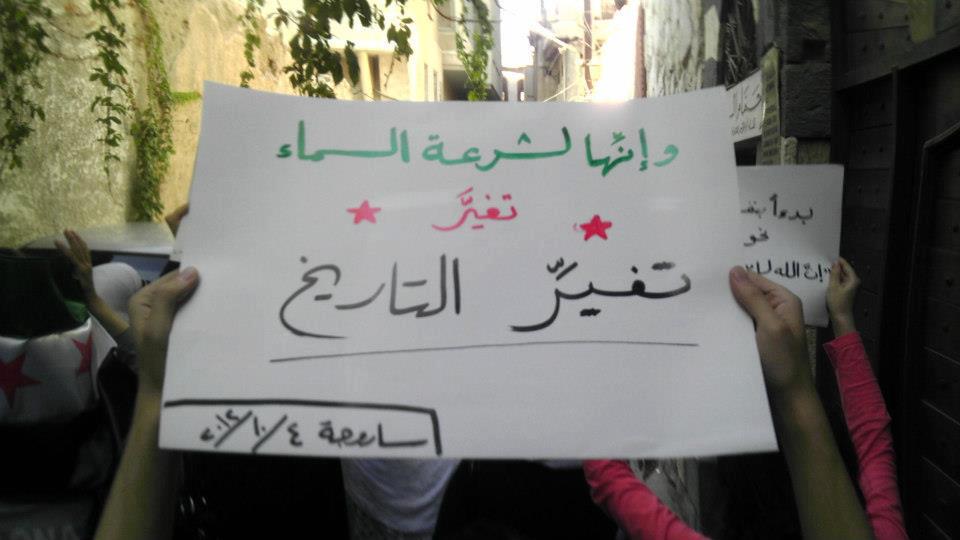 وإنّها لشرعة السماء
تغيَّر
تغيّر التاريخ
ساروجة ٤/١٠/٢٠١٢
بدءاً
نحو
"إن الله لا